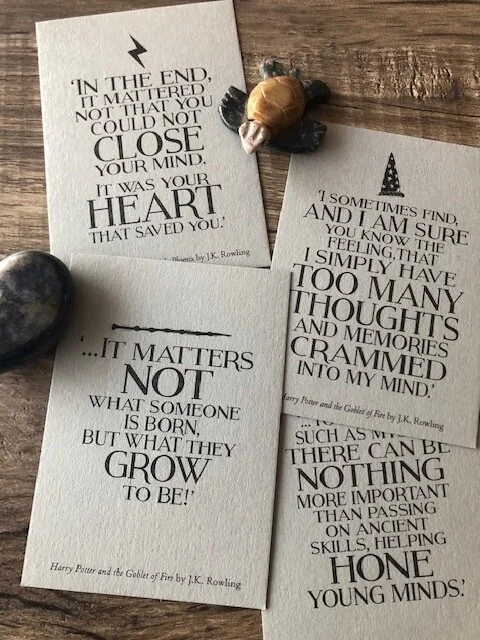 'IN THE END,
IT MATTERED
NOT THAT YOU
COULD NOT
CLOSE
YOUR MIND.
IT WAS YOUR
HEART
THAT SAVED YOU.'
by J.K. Rowling
'I SOMETIMES FIND,
AND I AM SURE
YOU KNOW THE
FEELING, THAT
I SIMPLY HAVE
TOO MANY
THOUGHTS
AND MEMORIES
CRAMMED
INTO MY MIND.'
Harry Potter and the Goblet of Fire by J.K. Rowling
'...IT MATTERS
NOT
WHAT SOMEONE
IS BORN,
BUT WHAT THEY
GROW
TO BE!'
Harry Potter and the Goblet of Fire by J.K. Rowling
SUCH AS
THERE CAN BE
NOTHING
MORE IMPORTANT
THAN PASSING
ON ANCIENT
SKILLS, HELPING
HONE
YOUNG MINDS.'